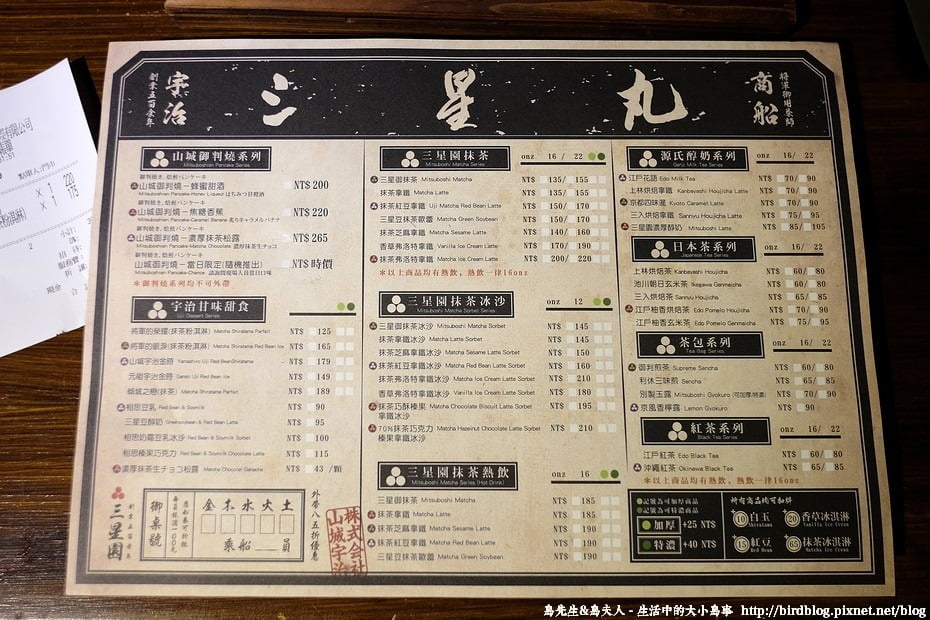 宇治
創業五百余年
三星丸
商船
將軍御用茶師
山城御判燒系列
Mitsuboshien Pancake Series
御判燒き, 焙煎パンケーキ
山城御判燒－蜂蜜甜酒 NT$ 200
御判燒き, 焙煎パンケーキ
山城御判燒－焦糖香蕉 NT$ 220
御判燒き, 焙煎パンケーキ
山城御判燒－濃厚抹茶松露 NT$ 265
御判燒き, 焙煎パンケーキ
山城御判燒－當日限定(隨機推出) NT$ 時價
＊御判燒系列均不可外帶
宇治甘味甜食
Uji Dessert Series
將軍的榮耀(抹茶粉淇淋) Matcha Shiratama Parfait NT$ 125
將軍的眼淚(抹茶粉淇淋) Matcha Shiratama Red Bean Ice NT$ 165
山城宇治金時 Yamashiro Uji Red Bean Shiratama NT$ 179
元祖宇治金時 Ganso Uji Red Bean Ice NT$ 149
傾城之戀(抹茶) Matcha Shiratama Parfait NT$ 189
相思豆乳 Red Bean & Soymilk NT$ 90
三星豆醇奶 Greensoybean & Red Bean Latte NT$ 95
相思奶霜豆乳冰沙 Red Bean & Soymilk Sorbet NT$ 100
相思榛果巧克力 Red Bean & Soymilk Chocolate Latte NT$ 115
濃厚抹茶生チョコ松露 Matcha Chocolat Ganache NT$ 43 /顆
三星園
創業五百余年
御桌號
金木水火土
乘船＿＿員
外帶八五折優惠
株式会社
山城宇治
三星園抹茶 onz 16 / 22
Mitsuboshi Matcha Series
三星御抹茶 Mitsuboshi Matcha NT$ 135/ 155
抹茶拿鐵 Matcha Latte NT$ 135/ 155
抹茶紅豆拿鐵 Uji Matcha Red Bean Latte NT$ 150/ 170
三星豆抹茶歐蕾 Matcha Green Soybean NT$ 150/ 170
抹茶芝麻拿鐵 Matcha Sesame Latte NT$ 140/ 160
香草弗洛特拿鐵 Vanilla Ice Cream Latte NT$ 170/ 190
抹茶弗洛特拿鐵 Matcha Ice Cream Latte NT$ 200/ 220
＊以上商品均有熱飲，熱飲一律16onz
三星園抹茶冰沙 onz 12
Mitsuboshi Matcha Sorbet Series
三星御抹茶冰沙 Mitsuboshi Matcha Sorbet NT$ 145
抹茶拿鐵冰沙 Matcha Latte Sorbet NT$ 145
抹茶芝麻拿鐵冰沙 Matcha Sesame Latte Sorbet NT$ 150
抹茶紅豆拿鐵冰沙 Matcha Red Bean Latte Sorbet NT$ 160
抹茶弗洛特拿鐵冰沙 Matcha Ice Cream Latte Sorbet NT$ 210
香草弗洛特拿鐵冰沙 Vanilla Ice Cream Latte Sorbet NT$ 180
抹茶巧酥榛果 Matcha Chocolate Biscuit Latte Sorbet NT$ 195
拿鐵冰沙
70%抹茶巧克力 Matcha Hazelnut Chocolate Latte Sorbet NT$ 210
榛果拿鐵冰沙
三星園抹茶熱飲 onz 16
Mitsuboshi Matcha Series (Hot Drink)
三星御抹茶 Mitsuboshi Matcha NT$ 185
抹茶拿鐵 Matcha Latte NT$ 185
抹茶芝麻拿鐵 Matcha Sesame Latte NT$ 190
抹茶紅豆拿鐵 Matcha Red Bean Latte NT$ 190
三星豆抹茶歐蕾 Matcha Green Soybean NT$ 190
源氏醇奶系列 onz 16/ 22
Genji Milk Tea Series
江戶花語 Edo Milk Tea NT$ 70/ 90
上林烘焙拿鐵 Kanbayashi Houjicha Latte NT$ 70/ 90
京都四味暹 Kyoto Caramel Latte NT$ 70/ 90
三入烘焙拿鐵 Sannyu Houjicha Latte NT$ 75/ 95
三星園濃厚醇奶 Mitsuboshi Latte NT$ 85/ 105
日本茶系列 onz 16/ 22
Japanese Tea Series
上林烘焙茶 Kanbayashi Houjicha NT$ 60/ 80
池川朝日玄米茶 Ikegawa Genmaicha NT$ 60/ 80
三入烘焙茶 Sannyu Houjicha NT$ 65/ 85
江戶柚香烘焙茶 Edo Pomelo Houjicha NT$ 70/ 90
江戶柚香玄米茶 Edo Pomelo Genmaicha NT$ 75/ 95
茶包系列 onz 16/ 22
Tea Bag Series
御判煎茶 Supreme Sencha NT$ 60/ 80
利休三味煎 Sencha NT$ 65/ 85
別製玉露 Mitsuboshi Gyokuro (可加厚/特濃) NT$ 70/ 90
京風香檸露 Lemon Gyokuro NT$ 70/ 90
紅茶系列 onz 16/ 22
Black Tea Series
江戶紅茶 Edo Black Tea NT$ 60/ 80
沖繩紅茶 Okinawa Black Tea NT$ 65/ 85
＊以上商品均有熱飲，熱飲一律16onz
記號為可加厚商品
記號為可特濃商品
加厚 +25 NTS
特濃 +40 NTS
所有商品均可加料
10 白玉 Shiratama
20 香草冰淇淋 Vanilla Ice Cream
15 紅豆 Red Bean
65 抹茶冰淇淋 Matcha Ice Cream
鳥先生&鳥夫人 - 生活中的大小鳥事 http://birdblog.pixnet.net/blog